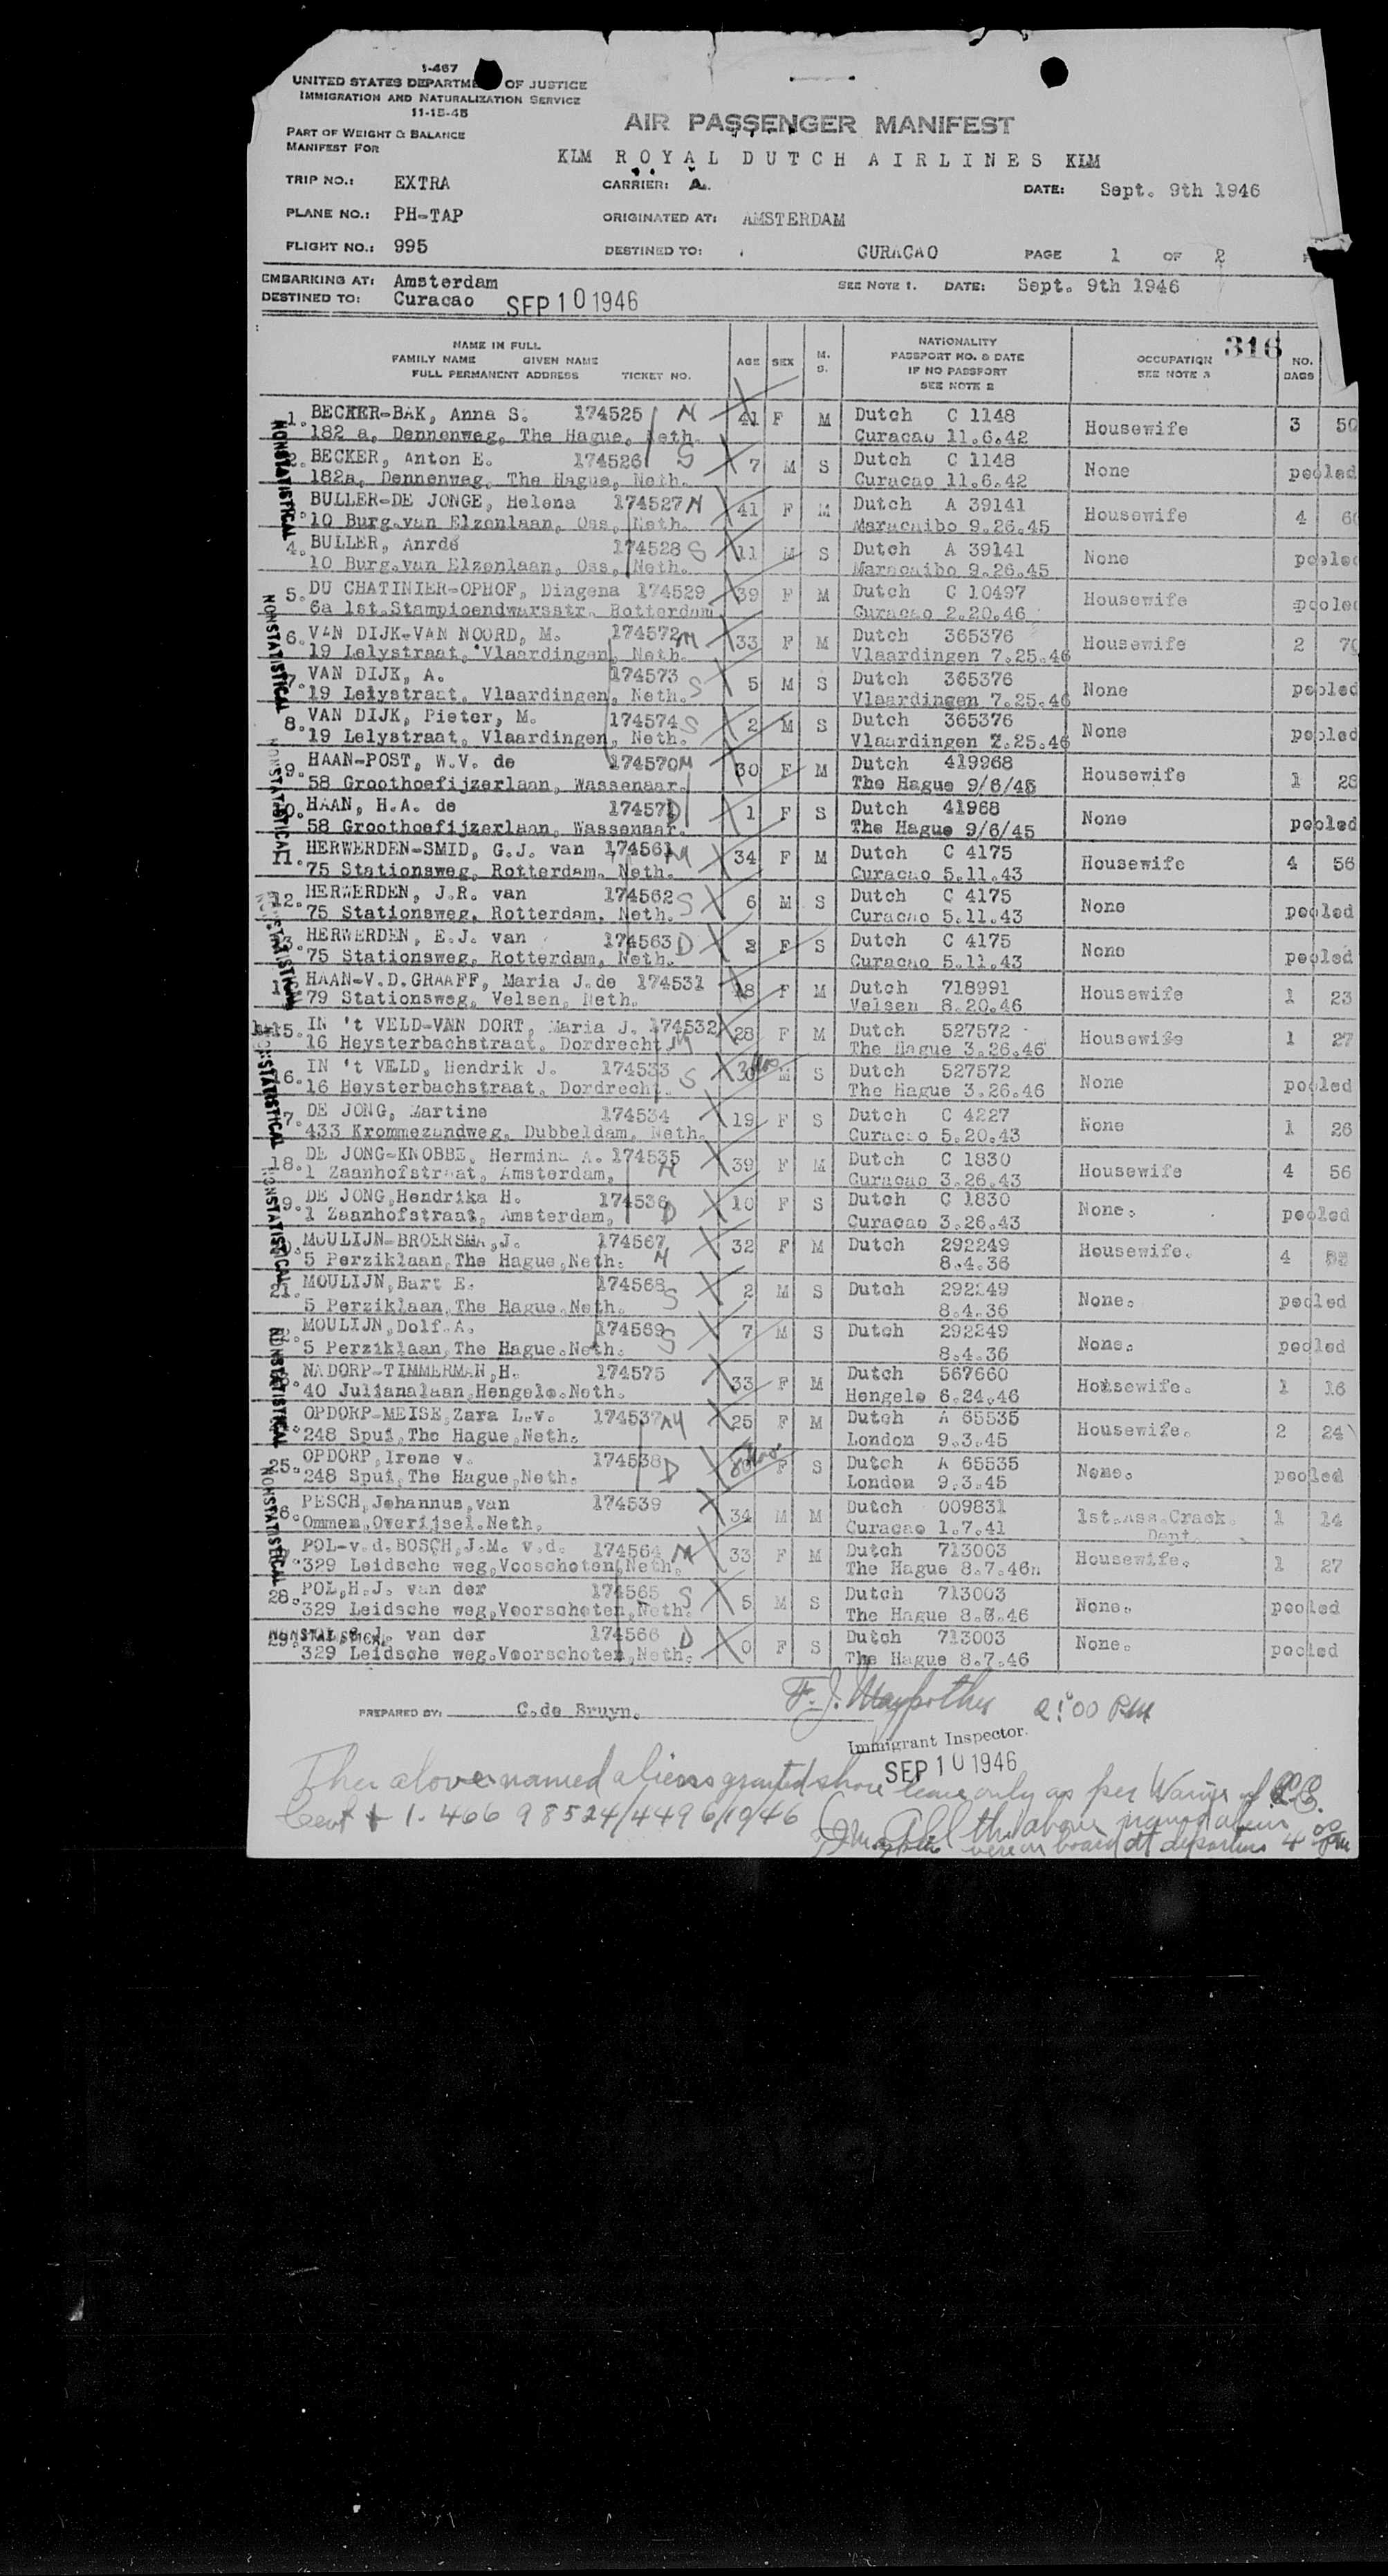 1-467
UNITED STATES DEPARTMENT OF JUSTICE
IMMIGRATION AND NATURALIZATION SERVICE
11-15-45
PART OF WEIGHT & BALANCE
MANIFEST FOR
AIR PASSENGER MANIFEST
KLM ROYAL DUTCH AIRLINES KLM
TRIP NO.: EXTRA CARRIER: A. DATE: Sept. 9th 1946
PLANE NO.: PH-TAP ORIGINATED AT: AMSTERDAM
FLIGHT NO.: 995 DESTINED TO: CURACAO PAGE 1 OF 2
EMBARKING AT: Amsterdam SEE NOTE 1. DATE: Sept. 9th 1946
DESTINED TO: Curacao SEP 10 1946
316
NAME IN FULL
FAMILY NAME GIVEN NAME
FULL PERMANENT ADDRESS TICKET NO.
AGE SEX M. S.
NATIONALITY
PASSPORT NO. & DATE
IF NO PASSPORT
SEE NOTE 2
OCCUPATION
SEE NOTE 3
NO. BAGS
1. BECKER-BAK, Anna S. 174525 M 41 F M Dutch C 1148 Housewife 3 50
182 a, Dennenweg, The Hague, Neth. Curacao 11.6.42
2. BECKER, Anton E. 174526 S 7 M S Dutch C 1148 None pooled
182a, Dennenweg, The Hague, Neth. Curacao 11.6.42
BULLER-DE JONGE, Helena 174527 M 41 F M Dutch A 39141 Housewife 4
10 Burg.van Elzenlaan, Oss, Neth. Maracaibo 9.26.45
4. BULLER, Anrdé 174528 S 11 M S Dutch A 39141 None pooled
10 Burg.van Elzenlaan, Oss, Neth. Maracaibo 9.26.45
5. DU CHATINIER-OPHOF, Dingena 174529 39 F M Dutch C 10497 Housewife pooled
6a 1st.Stampioendwarsstr. Rotterdam Curacao 2.20.46
6. VAN DIJK-VAN NOORD, M. 174572 M 33 F M Dutch 365376 Housewife 2
19 Lelystraat, Vlaardingen, Neth. Vlaardingen 7.25.46
7. VAN DIJK, A. 174573 S 5 M S Dutch 365376 None pooled
19 Lelystraat, Vlaardingen, Neth. Vlaardingen 7.25.46
8. VAN DIJK, Pieter, M. 174574 S 2 M S Dutch 365376 None pooled
19 Lelystraat, Vlaardingen, Neth. Vlaardingen 7.25.46
9. HAAN-POST, W.V. de 174570 M 30 F M Dutch 419968 Housewife 1
58 Groothoefijzerlaan, Wassenaar. The Hague 9/6/45
HAAN, H.A. de 174571 D 1 F S Dutch 41968 None pooled
58 Groothoefijzerlaan, Wassenaar. The Hague 9/6/45
11. HERWERDEN-SMID, G.J. van 174561 M 34 F M Dutch C 4175 Housewife 4 56
75 Stationsweg, Rotterdam, Neth. Curacao 5.11.43
12. HERWERDEN, J.R. van 174562 S 6 M S Dutch C 4175 None pooled
75 Stationsweg, Rotterdam, Neth. Curacao 5.11.43
HERWERDEN, E.J. van 174563 D F S Dutch C 4175 None pooled
75 Stationsweg, Rotterdam, Neth. Curacao 5.11.43
HAAN-V.D.GRAAFF, Maria J.de 174531 F M Dutch 718991 Housewife 1 23
79 Stationsweg, Velsen, Neth. Velsen 8.20.46
15. IN 't VELD-VAN DORT, Maria J. 174532 M 28 F M Dutch 527572 Housewife 1 27
16 Heysterbachstraat, Dordrecht The Hague 3.26.46
16. IN 't VELD, Hendrik J. 174533 S 30 mos M S Dutch 527572 None pooled
16 Heysterbachstraat. Dordrecht. The Hague 3.26.46
DE JONG, Martine 174534 19 F S Dutch C 4227 None 1 26
433 Krommezandweg, Dubbeldam, Neth. Curacao 5.20.43
18. DE JONG-KNOBBE, Hermina A. 174535 M 39 F M Dutch C 1830 Housewife 4 56
1 Zaanhofstraat, Amsterdam, Curacao 3.26.43
DE JONG,Hendrika H. 174536 D 10 F S Dutch C 1830 None. pooled
1 Zaanhofstraat, Amsterdam, Curacao 3.26.43
MOULIJN-BROERSMA,J. 174567 M 32 F M Dutch 292249 Housewife. 4
5 Perziklaan,The Hague,Neth. 8.4.36
21. MOULIJN,Bart E. 174568 S 2 M S Dutch 292249 None. pooled
5 Perziklaan,The Hague.Neth. 8.4.36
MOULIJN,Dolf.A. 174569 S 7 M S Dutch 292249 None. pooled
5 Perziklaan,The Hague.Neth. 8.4.36
NADORP-TIMMERMAN,H. 174575 33 F M Dutch 567660 Housewife. 1 16
40 Julianalaan,Hengelo.Neth. Hengelo 6.24.46
OPDORP-MEISE,Zara L.v. 174537 M 25 F M Dutch A 65535 Housewife. 2 24
248 Spui,The Hague,Neth. London 9.3.45
25. OPDORP,Irene v. 174538 D F S Dutch A 65535 None. pooled
248 Spui,The Hague,Neth. London 9.3.45
PESCH,Johannus,van 174539 34 M M Dutch 009831 1st.Ass.Crack. 1 14
Ommen,Overijsel.Neth. Curacao 1.7.41 Dept.
POL-v.d.BOSCH,J.M. v.d. 174564 M 33 F M Dutch 713003 Housewife. 1 27
329 Leidsche weg,Vooschoten,Neth. The Hague 8.7.46
28. POL,H.J. van der 174565 S 5 M S Dutch 713003 None. pooled
329 Leidsche weg,Voorschoten,Neth. The Hague 8.8.46
van der 174566 D 0 F S Dutch 713003 None. pooled
329 Leidsche weg.Voorschoten,Neth. The Hague 8.7.46
NONSTATISTICAL
NONSTATISTICAL
NONSTATISTICAL
NONSTATISTICAL
NONSTATISTICAL
NONSTATISTICAL
NONSTATISTICAL
NONSTATISTICAL
NONSTATISTICAL
PREPARED BY: C.de Bruyn. 2:00 PM
Immigrant Inspector.
SEP 10 1946
The above named aliens granted shore leave only as per Waiver of
1.466 98524/449 6/10/46
All the above named aliens
were on board at departure 4 00 PM